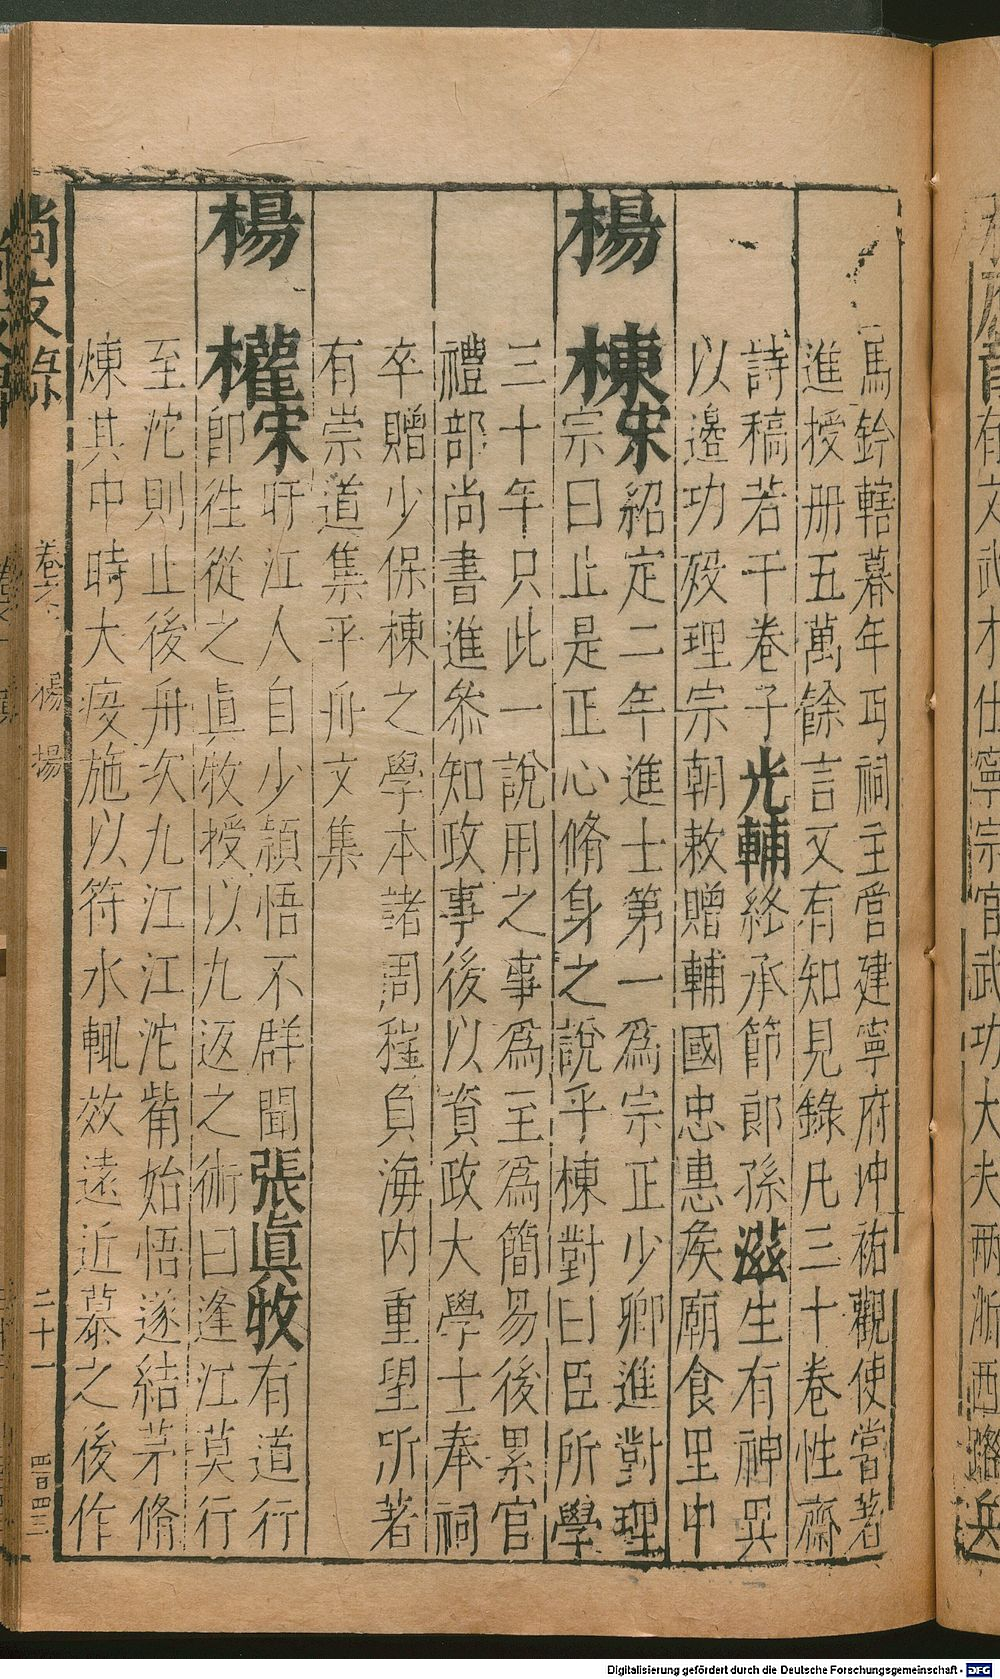 有文武才仕寧宗官武功大夫兩浙西路兵
馬鈐轄暮年丏祠主管建寧府冲祐觀使嘗著
進授册五萬餘言又有知見錄凡三十卷性齋
詩稿若干卷子光輔終承節郎孫滋生有神異
以邊功殁理宗朝敕贈輔國忠惠侯廟食里中
楊棟宋紹定二年進士第一爲宗正少卿進對理
宗曰止是正心脩身之說乎棟對曰臣所學
三十年只此一說用之事爲至爲簡易後累官
禮部尚書進叅知政事後以資政大學士奉祠
卒贈少保棟之學本諸周程負海内重望所著
有崇道集平舟文集
楊權宋盱江人自少穎悟不群聞張眞牧有道行
即徃從之眞牧授以九返之術曰逢江莫行
至沱則止後舟次九江江沱觜始悟遂結茅脩
煉其中時大疫施以符水輒效遠近慕之後作
尚友錄 卷之 楊 揚 二十一 四百四三
Digitalisierung gefördert durch die Deutsche Forschungsgemeinschaft - DFG